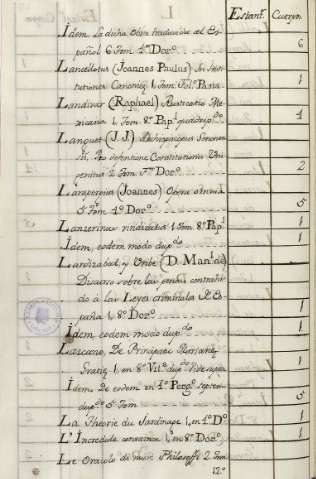 Estant.e Cuerpo.
Idem La dicha Obra traducida al Es-
pañol 6 Tom. 4.º Dor.º 6
Lancellotus (Joannes Paulus) In Insti-
tutiones Canonicas 1. Tom. Fol. Pasta 1
Landivar (Raphael) Rusticatio Me-
xicana 1. Tom. 8.º Pap.n 1
Languet (J. J.)
Pro defensione Constitutionis Uni-
genitus 2. Tom. Dor.º 2
(Joannes) Opera omnia
5. Tom. 4.º Dor.º 5
1. Tom. 8.º Pap.l 1
Idem, eodem modo dup.do 1
Lardizabal, y Uribe (D. Man.l de)
Discurso sobre las penas contrahi-
do á las Leyes criminales de Es-
paña 1. 8.º Dor.º 1
Idem eodem modo dup.do 1
Lascano, De Principatu Marianæ
Gratiæ 1. en 8.º 1
Idem. de eodem en 4.º Perg.º
dup.do 5. Tom. 5
La Theorie du Jardinage 1. en 4.º D.º 1
L'Incredule 1. en 8.º Dor.º 1
Le Oracolo de 2. Tom
12.º